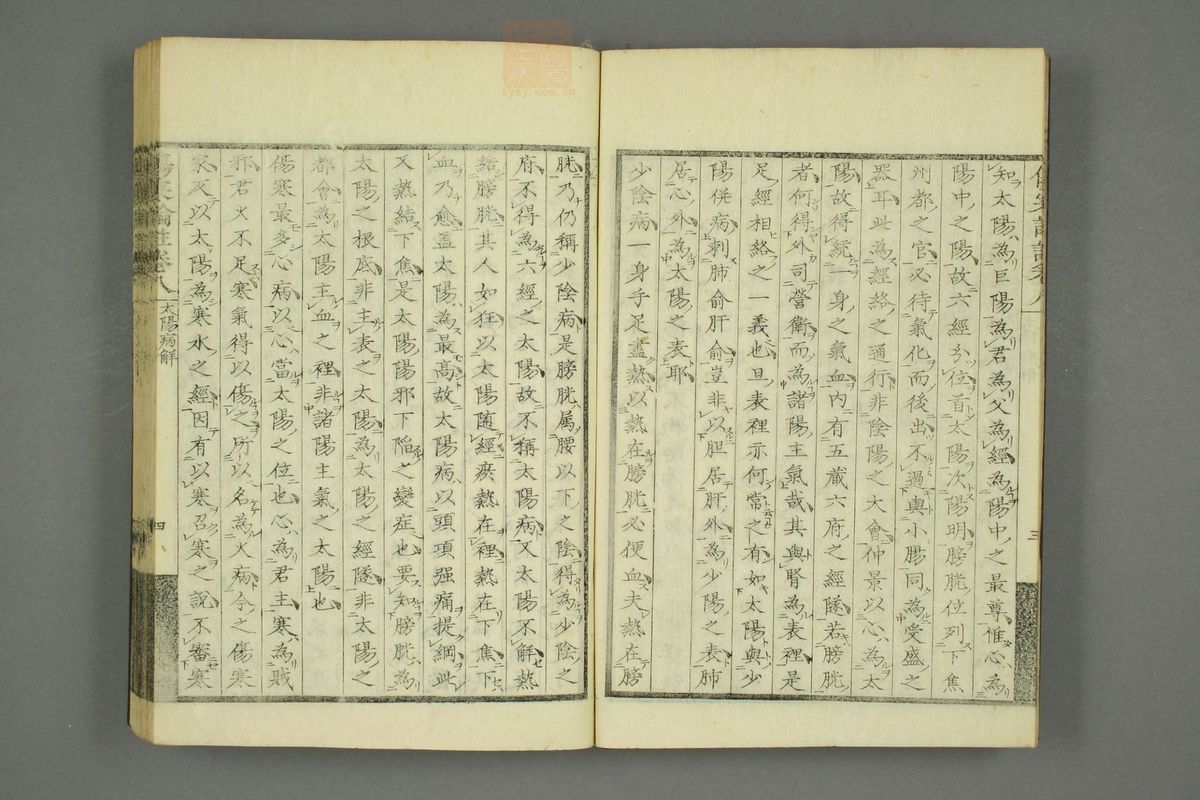 知太陽為巨陽為君為父為經為陽中之最尊惟心為
陽中之陽故六經分位首太陽次陽明膀胱位列下焦
州都之官必待氣化而後出不過與小腸同為受盛之
器耳此為經絡之通行非陰陽之大會仲景以心為太
陽故得統一身之氣血内有五藏六府之經隧若膀胱
者何得外司營衛而為諸陽主氣哉其與腎為表裡是
足經相絡之一義也且表裡亦何常之有如太陽與少
陽併病刺肺俞肝俞豈非以胆居肝外為少陽之表肺
居心外為太陽之表耶
少陰病一身手足盡熱以熱在膀胱必便血夫熱在膀
胱乃仍稱少陰病是膀胱属腰以下之陰得為少陰之
府不得為六經之太陽故不稱太陽病又太陽不解熱
結膀胱其人如狂以太陽隨經瘀熱在裡熱在下焦下
血乃愈蓋太陽為最高故太陽病以頭項强痛提綱此
又熱結下焦是太陽陽邪下陥之變症也要知膀胱為
太陽之根底非主表之太陽為太陽之經隧非太陽之
都會為太陽主血之裡非諸陽主氣之太陽也
傷寒最多心病以心當太陽之位也心為君主寒為賊
邪君火不足寒氣得以傷之所以名為大病今之傷寒
家反以太陽為寒水之經因有以寒召寒之說不審寒
太陽病解
三
四